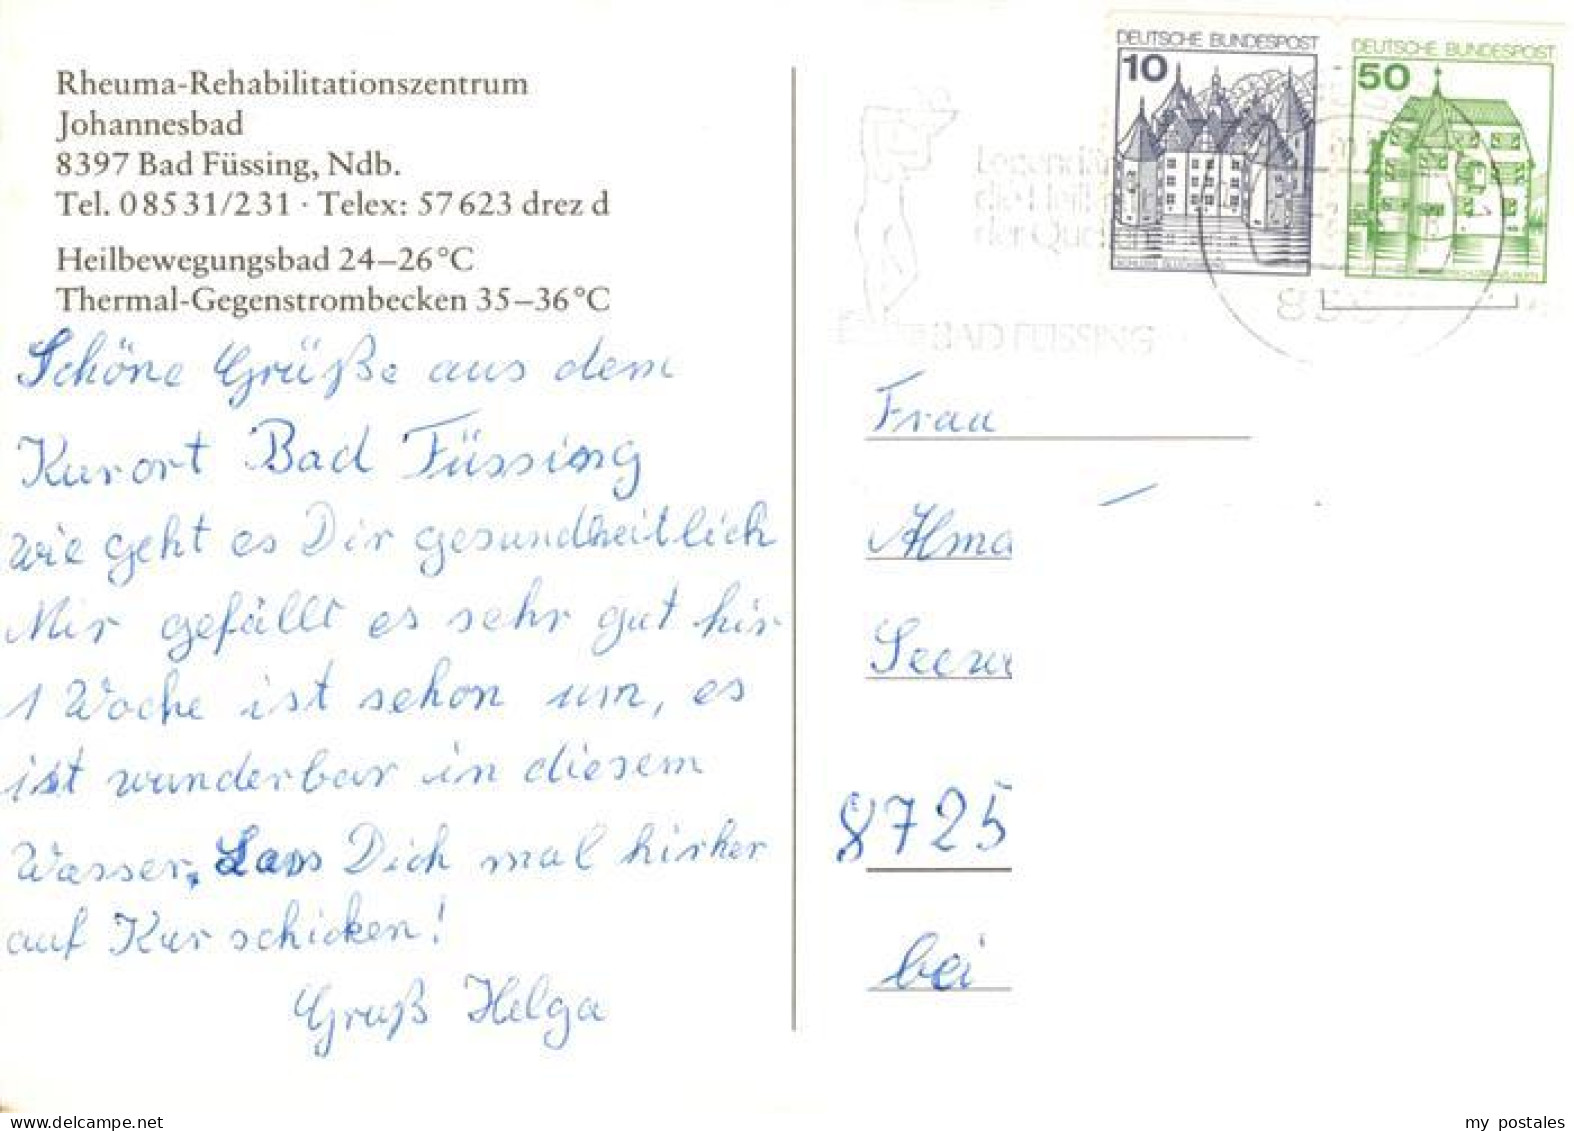 Rheuma-Rehabilitationszentrum
Johannesbad
8397 Bad Füssing, Ndb.
Tel. 08531/231 · Telex: 57623 drez d
Heilbewegungsbad 24–26°C
Thermal-Gegenstrombecken 35–36°C
Schöne Grüße aus dem
Kurort Bad Füssing
wie geht es Dir gesundheitlich
Mir gefällt es sehr gut hir
1 Woche ist schon um, es
ist wunderbar in diesem
Wasser, Lass Dich mal hirher
auf Kur schicken!
Gruß Helga
DEUTSCHE BUNDESPOST
10
DEUTSCHE BUNDESPOST
50
die Heil
der Quellen
BAD FÜSSING
Frau
Alma
8725
bei
www.delcampe.net
my_postales